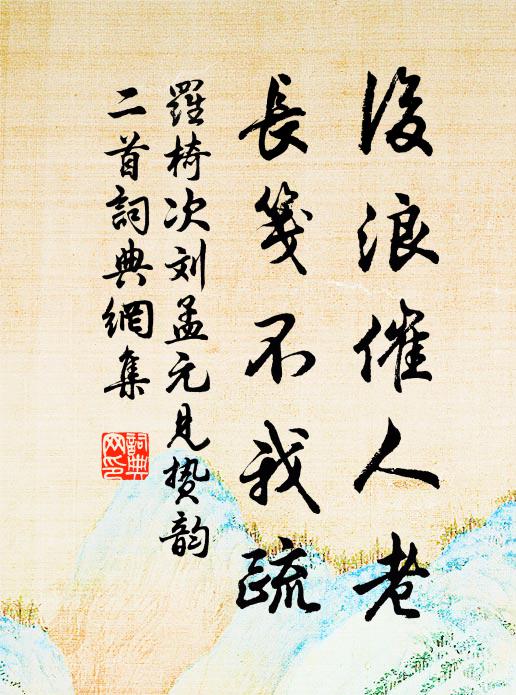 後浪催人老
長箋不我疏
羅椅次刘孟元見贽韵
二首詞典網集
詞典
网印